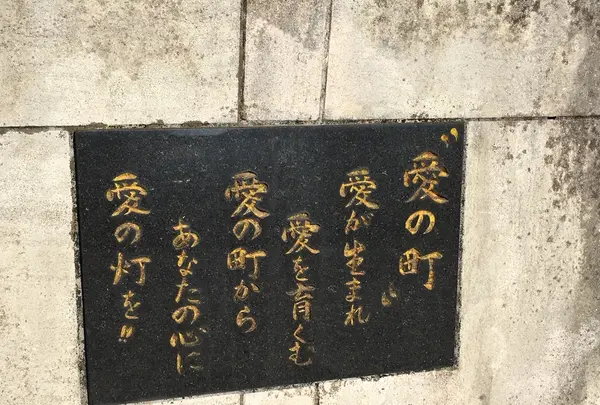 〝愛の町〟
愛が生まれ
愛を育くむ
愛の町から
あなたの心に
愛の灯を!!